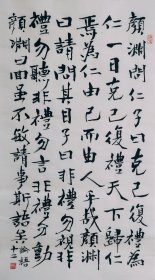 顏淵問仁子曰克己復禮為
仁一日克己復禮天下歸仁
焉為仁由己而由人乎哉顏淵
曰請問其目子曰非禮勿視非
禮勿聽非禮勿言非禮勿動
顏淵曰回雖不敏請事斯語